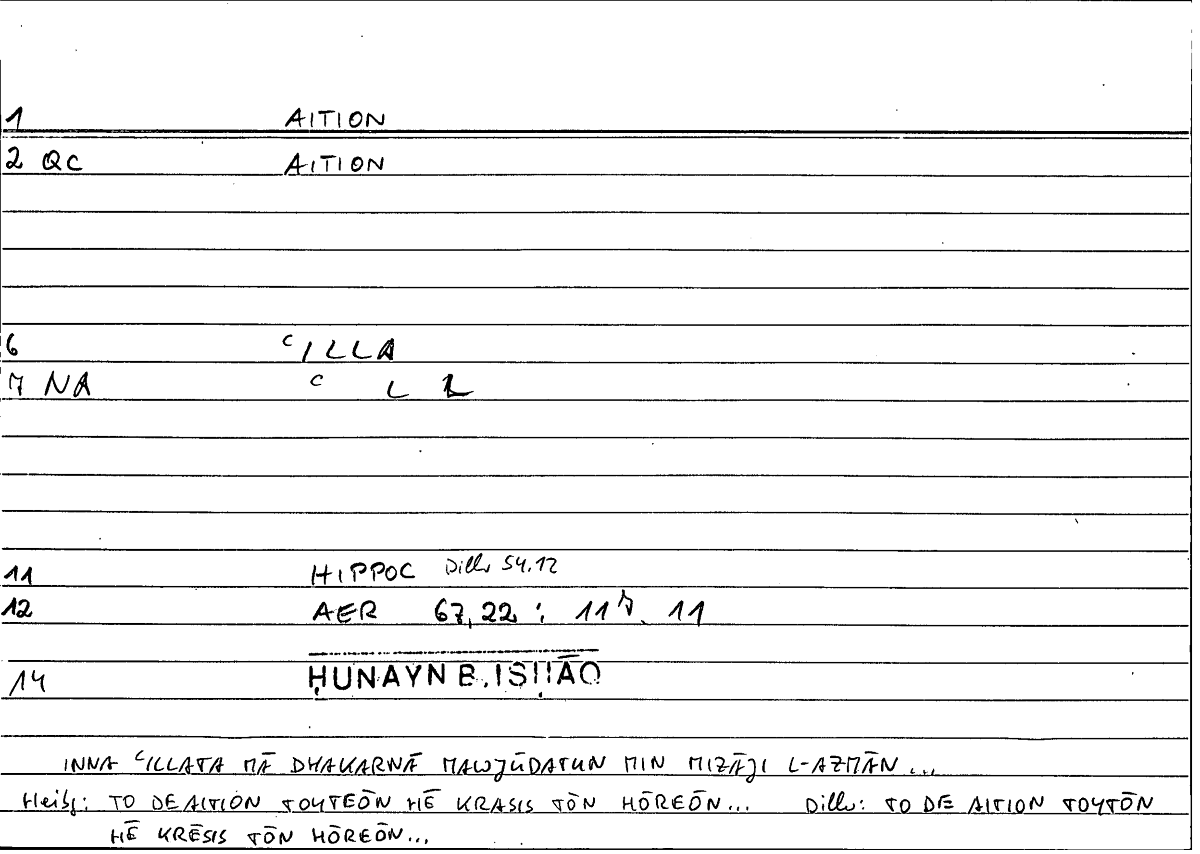 1 AITION
2 QC AITION
6 ʿILLA
7 NA ʿ L L
11 HIPPOC Diller 54.12
12 AER 67,22 : 117. 11
14 ḤUNAYN B. ISḤĀQ
INNA ʿILLATA MĀ DHAKARNĀ MAWJŪDATUN MIN MIZĀJI L-AZMĀN...
Heibg: TO DE AITION TOYTEŌN HĒ KRASIS TŌN HŌREŌN... Diller: TO DE AITION TOYTŌN
HĒ KRĒSIS TŌN HŌREŌN...